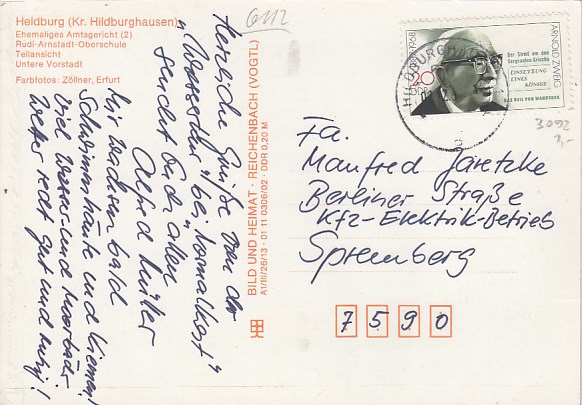 Heldburg (Kr. Hildburghausen)
Ehemaliges Amtsgericht (2)
Rudi-Arnstadt-Oberschule
Teilansicht
Untere Vorstadt
Farbfotos: Zöllner, Erfurt
6112
Herzliche Grüße von der
"Wasserkur" bei "Normalkost"
sendet Euch allen
Alfred
Wir wachsen bald
Schwimmhäute und Kiemen!
Viel Wasser- und Moorbäder
Wetter recht gut und ruhig!
BILD UND HEIMAT · REICHENBACH (VOGTL)
A1/III/26/13 · 01 11 0306/02 · DDR 0,20 M
HILDBURGHAUSEN
1968
20
DDR
Der Streit um den
Sergeanten Grischa
EINSETZUNG
EINES
KÖNIGS
DAS BEIL VON WANDSBEK
ARNOLD ZWEIG
3092
Fa.
Manfred Jaretzke
Berliner Straße
Kfz-Elektrik-Betrieb
Spremberg
7590